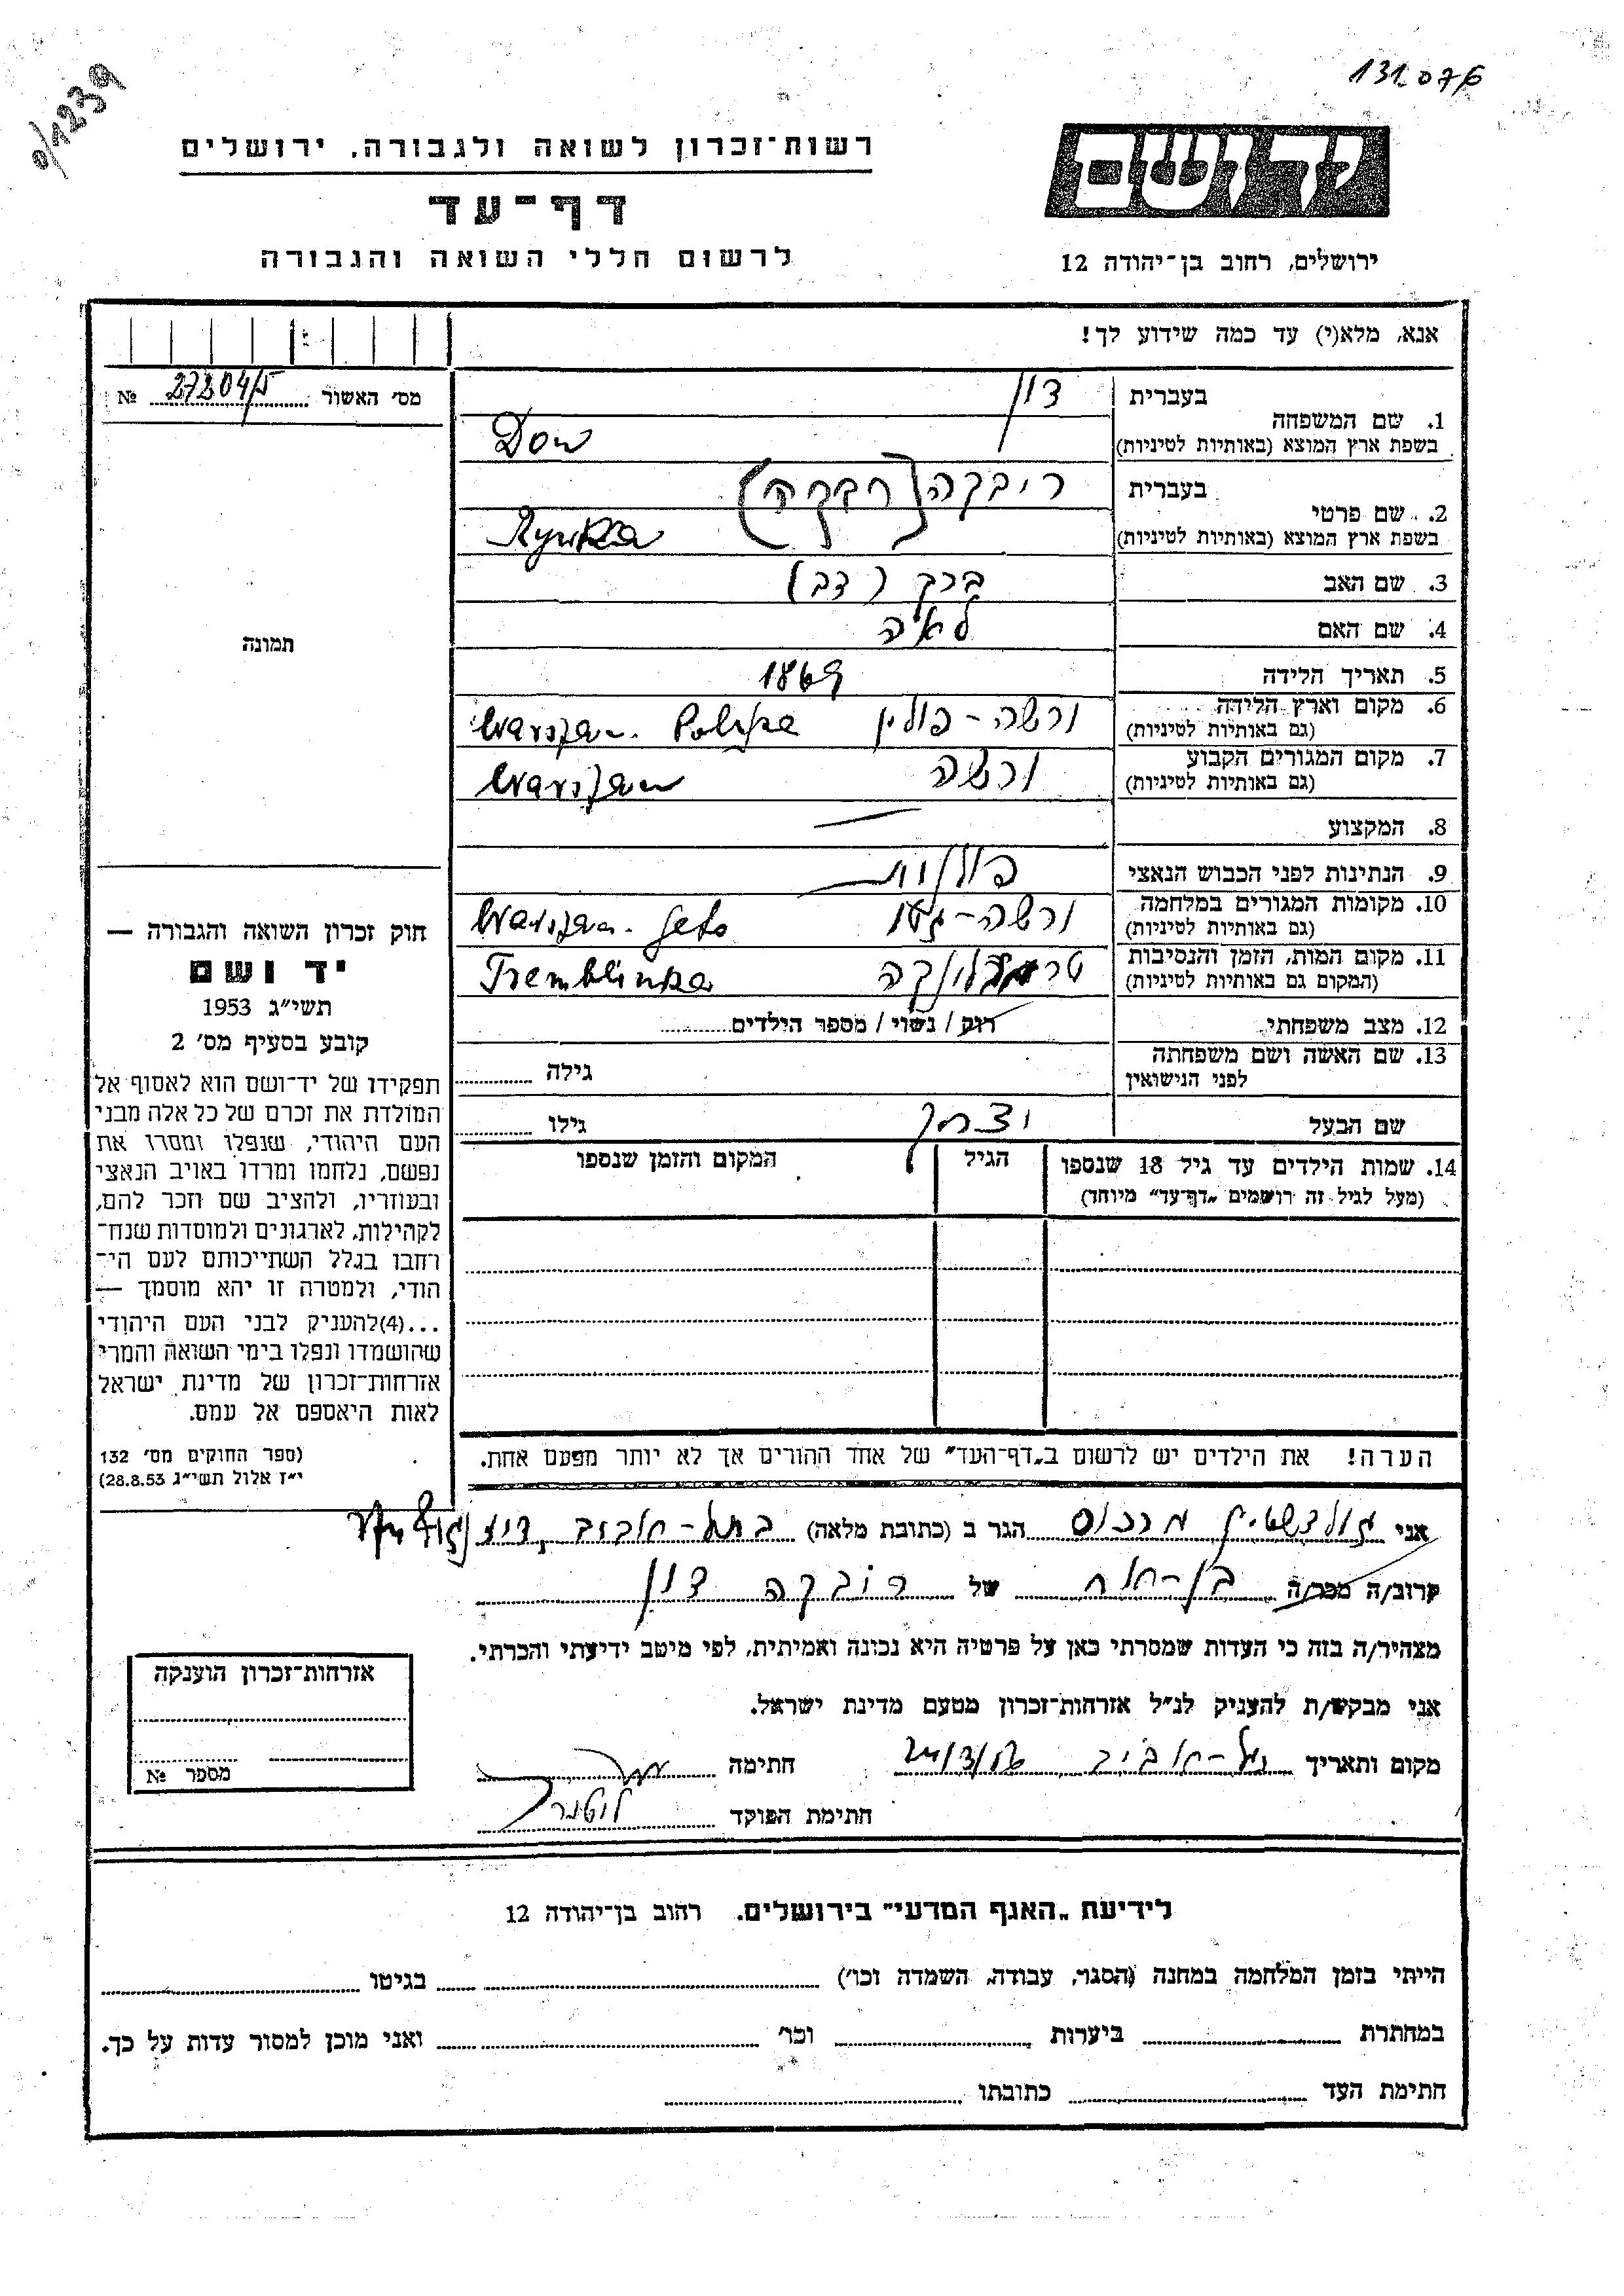 131.076
0/1239
יד ושם
רשות־זכרון לשואה ולגבורה, ירושלים
דף־עד
לרשום חללי השואה והגבורה
ירושלים, רחוב בן־יהודה 12
אנא, מלא(י) עד כמה שידוע לך!
מס׳ האשור 27204/5 №
תמונה
1. שם המשפחה
בעברית דון
בשפת ארץ המוצא (באותיות לטיניות) Don
2. שם פרטי
בעברית ריבקה (רבקה)
בשפת ארץ המוצא (באותיות לטיניות) Rywka
3. שם האב ברך (דב)
4. שם האם לאיה
5. תאריך הלידה 1869
6. מקום וארץ הלידה ורשה - פולין Warszawa. Polska
(גם באותיות לטיניות)
7. מקום המגורים הקבוע ורשה Warszaw
(גם באותיות לטיניות)
8. המקצוע —
9. הנתינות לפני הכבוש הנאצי פולנית
10. מקומות המגורים במלחמה ורשה - גטו Warszaw. Geto
(גם באותיות לטיניות)
11. מקום המות, הזמן והנסיבות טרמבלינקה Tremblinka
(המקום גם באותיות לטיניות)
12. מצב משפחתי רוק / נשוי / מספר הילדים
13. שם האשה ושם משפחתה
לפני הנישואין
גילה
שם הבעל יצחק גילו
14. שמות הילדים עד גיל 18 שנספו הגיל המקום והזמן שנספו
(מעל לגיל זה רושמים „דף־עד” מיוחד)
הערה! את הילדים יש לרשום ב„דף־העד” של אחד ההורים אך לא יותר מפעם אחת.
חוק זכרון השואה והגבורה —
יד ושם
תשי״ג 1953
קובע בסעיף מס׳ 2
תפקידו של יד־ושם הוא לאסוף אל
המולדת את זכרם של כל אלה מבני
העם היהודי, שנפלו ומסרו את
נפשם, נלחמו ומרדו באויב הנאצי
ובעוזריו, ולהציב שם וזכר להם,
לקהילות, לארגונים ולמוסדות שנח־
רחבו בגלל השתייכותם לעם הי־
הודי, ולמטרה זו יהא מוסמך —
...(4)להעניק לבני העם היהודי
שהושמדו ונפלו בימי השואה והמרי
אזרחות־זכרון של מדינת ישראל
לאות היאספם אל עמם.
(ספר החוקים מס׳ 132
י״ז אלול תשי״ג 28.8.53)
אני גולדשטין מרכוס הגר ב (כתובת מלאה) בתל-אביב,
קרוב/ה מכר/ה בן-אח של ריבקה דון
מצהיר/ה בזה כי העדות שמסרתי כאן על פרטיה היא נכונה ואמיתית, לפי מיטב ידיעתי והכרתי.
אני מבקש/ת להעניק לנ״ל אזרחות־זכרון מטעם מדינת ישראל.
מקום ותאריך תל-אביב חתימה
חתימת הפוקד
אזרחות־זכרון הוענקה
מספר №
לידיעת „האגף המדעי” בירושלים. רחוב בן־יהודה 12
הייתי בזמן המלחמה במחנה (הסגר, עבודה, השמדה וכו׳) בגיטו
במחתרת ביערות וכו׳ ואני מוכן למסור עדות על כך.
חתימת העד כתובתו